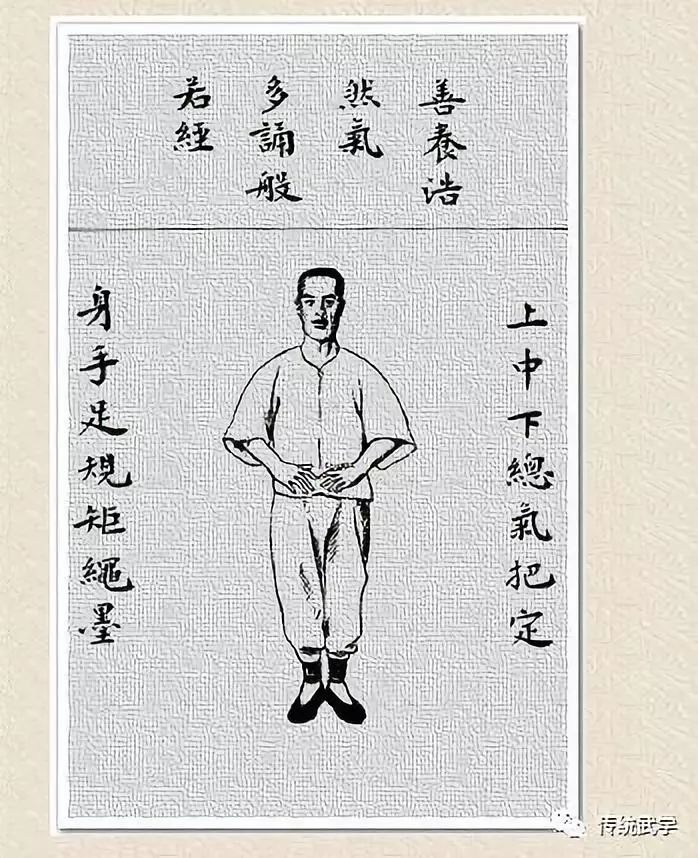 善養浩
然氣
多誦般
若經
上中下總氣把定
身手足規矩繩墨
传统武学